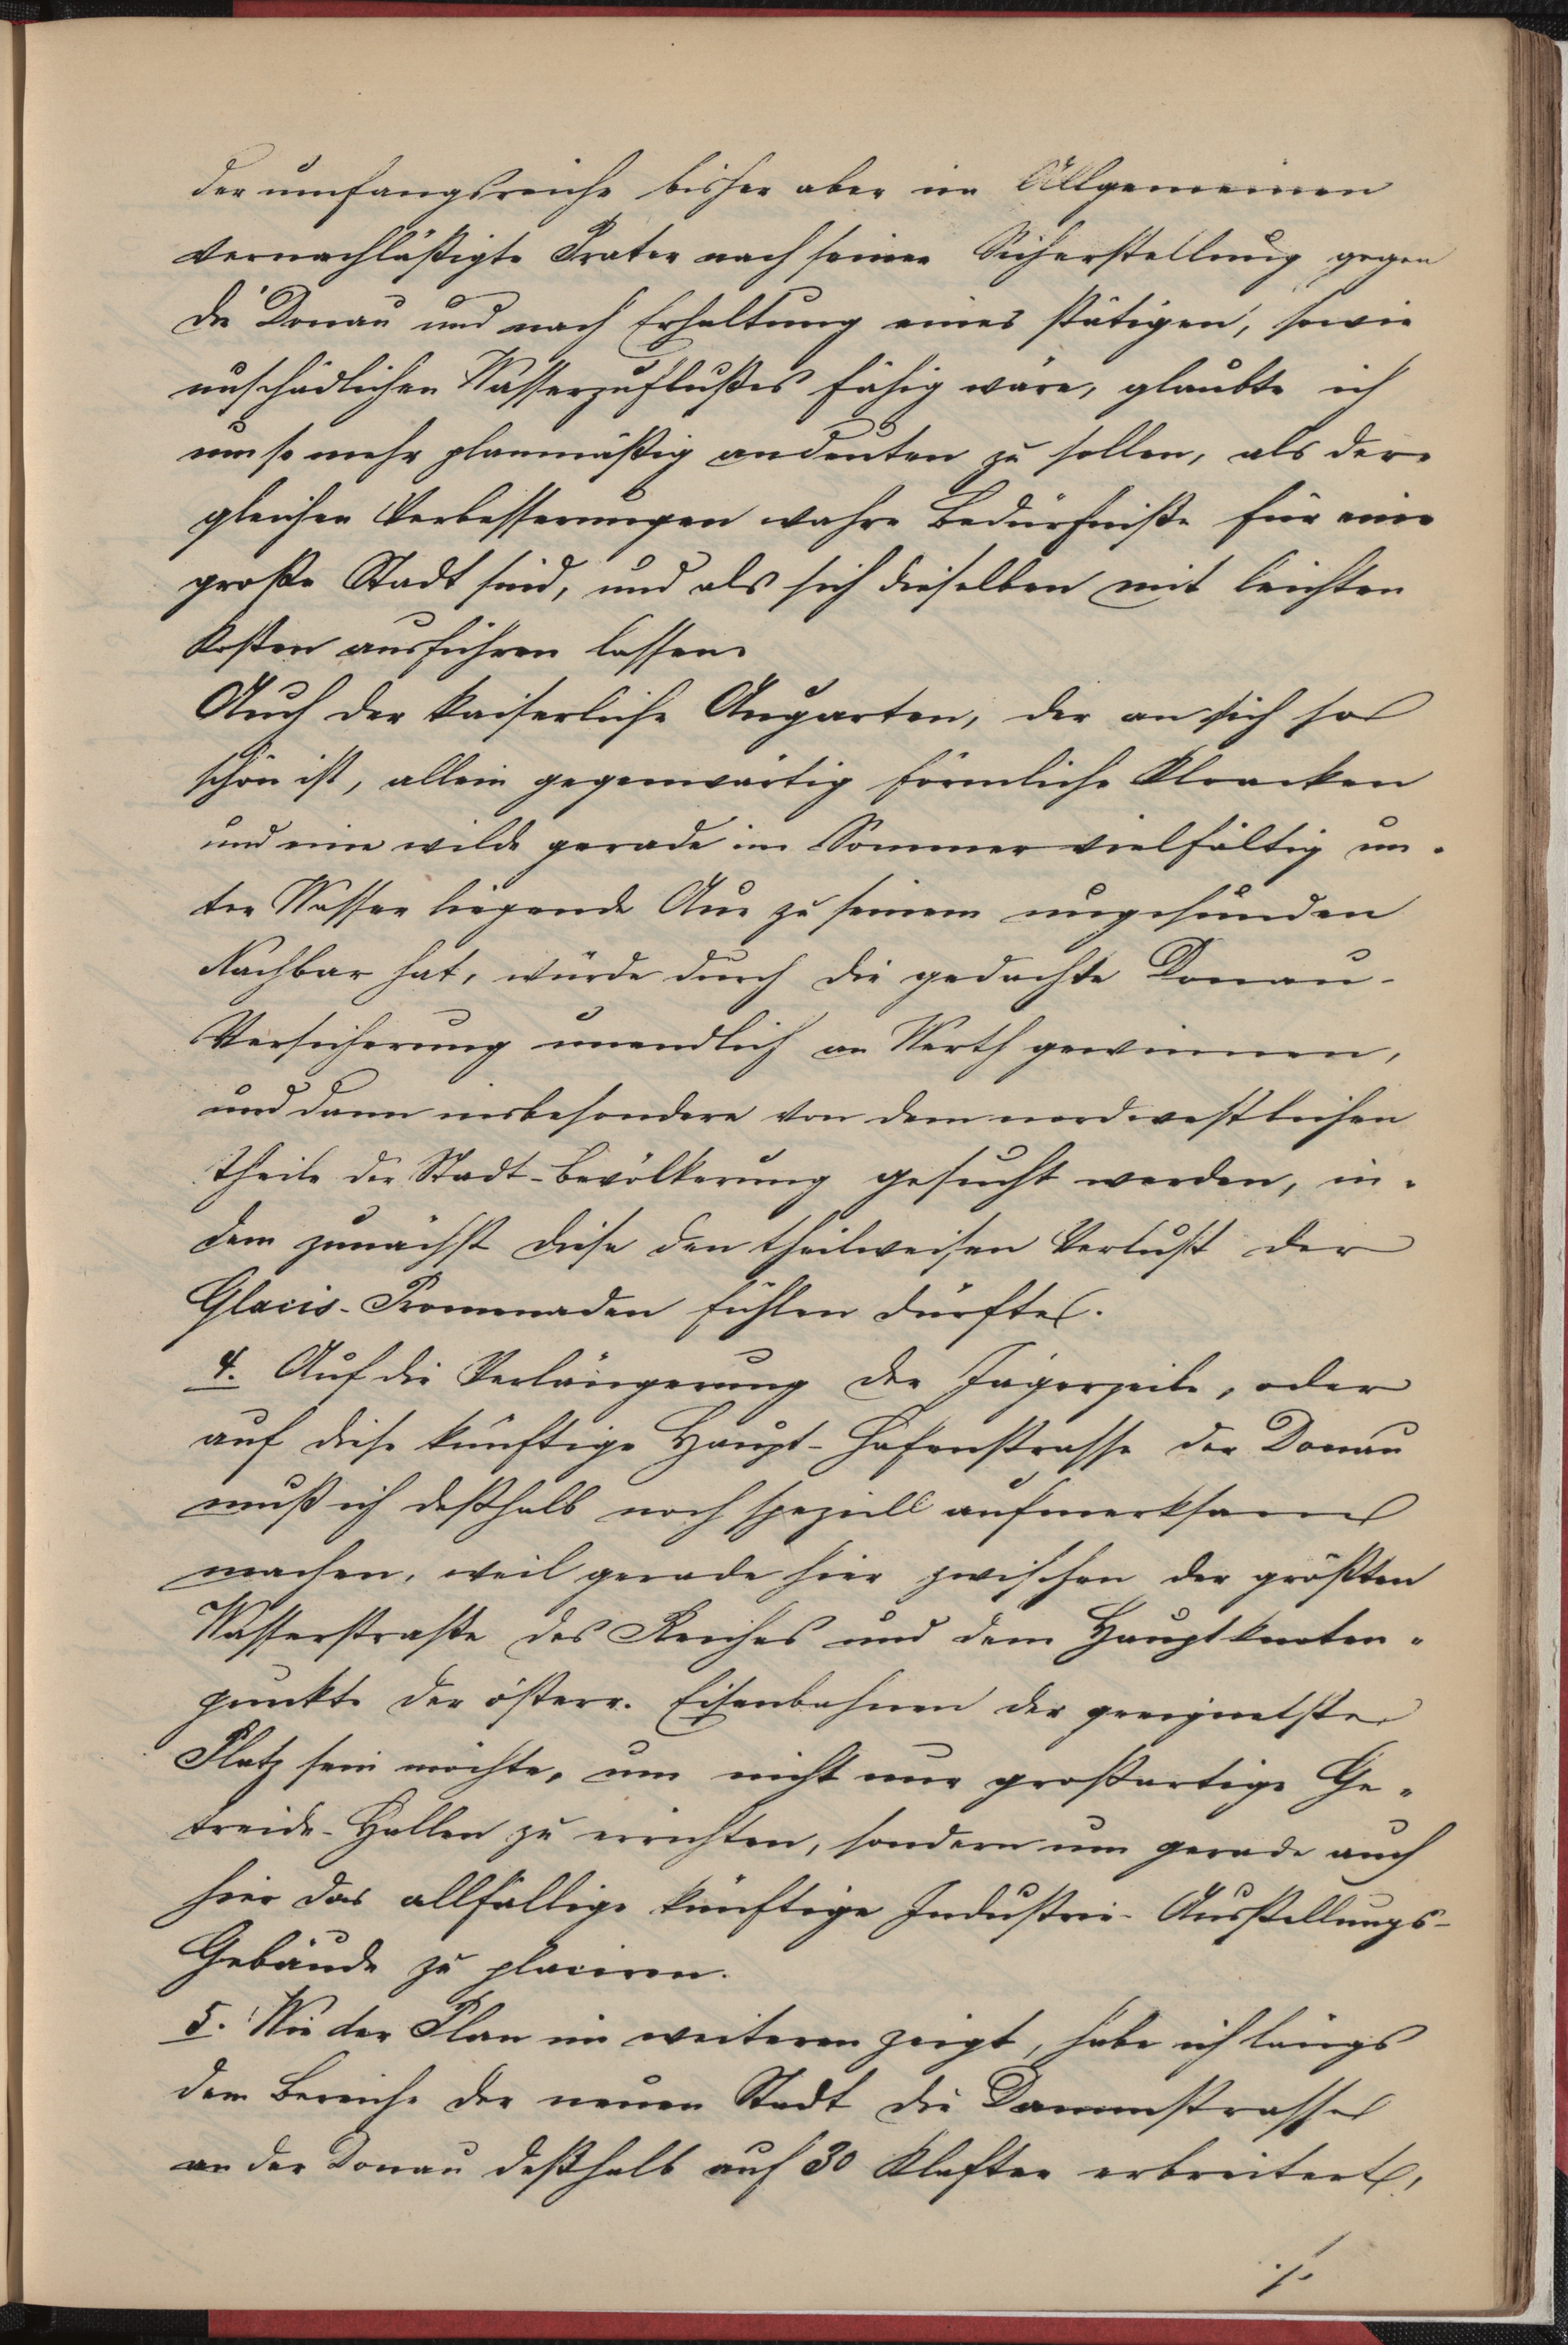 der umfangsreiche bisher aber im Allgemeinen
vernachläßigte Prater nach seiner Sicherstellung gegen
die Donau und nach Erhaltung eines stätigen, sowie
unschädlichen Wasserzuflußes fähig wäre, glaubte ich
um so mehr planmäßig andeuten zu sollen, als der-
gleichen Verbesserungen wahre Bedürfniße für eine
große Stadt sind, und als sich dieselben mit leichten
Kosten ausführen lassen.
Auch der kaiserliche Augarten, der an sich so
schön ist, allein gegenwärtig förmliche Kloacken
und eine wilde gerade im Sommer vielfältig un-
ter Wasser liegende Aue zu seinem ungesunden
Nachbar hat, würde durch die gedachte Donau-
Versicherung unendlich an Werth gewinnen,
und dann insbesondere von dem nordwestlichen
Theile der Stadt-Bevölkerung gesucht werden, in-
dem zunächst diese den theilweisen Verlust der
Glacis-Promenaden fühlen dürfte.
4. Auf die Verlängerung der Jägerzeile, oder
auf diese künftige Haupt-Hafenstrasse der Donau
muß ich deßhalb noch speziell aufmerksam
machen, weil gerade hier zwischen der größten
Wasserstraße des Reiches und dem Hauptknoten-
punkte der österr. Eisenbahnen der geeignetste
Platz sein möchte, um nicht nur großartige Ge-
treide-Hallen zu errichten, sondern um gerade auch
hier das allfällige künftige Industrie-Ausstellungs-
Gebäude zu placiren.
5. Wie der Plan im weiteren zeigt, habe ich längs
dem Bereiche der neuen Stadt die Dammstrasse
an der Donau deßhalb auf 30 Klafter erbreitert,
./.